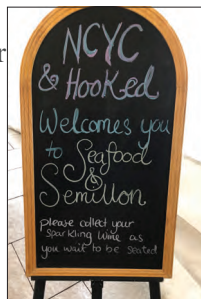 r
NCYC
& Hooked
Welcomes you
to Seafood
&
Semillon
please collect your
sparkling wine as
you wait to be seated